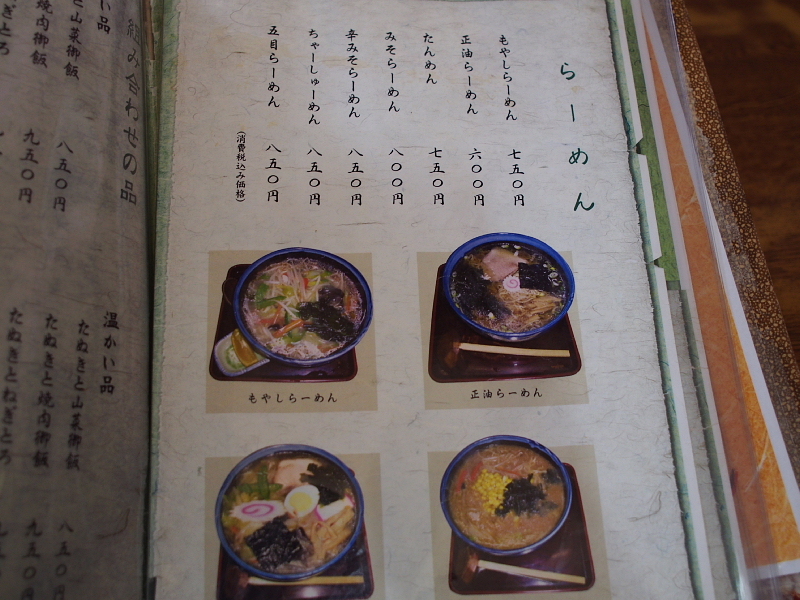 らーめん
もやしらーめん 七五〇円
正油らーめん 六〇〇円
たんめん 七五〇円
みそらーめん 八〇〇円
辛みそらーめん 八五〇円
ちゃーしゅーめん 八五〇円
五目らーめん 八五〇円
(消費税込み価格)
もやしらーめん
正油らーめん
組み合わせの品
い品
と山菜御飯 八五〇円
焼肉御飯 九五〇円
ねぎとろ
温かい品
たぬきと山菜御飯 八五〇円
たぬきと焼肉御飯 九五〇円
たぬきとねぎとろ